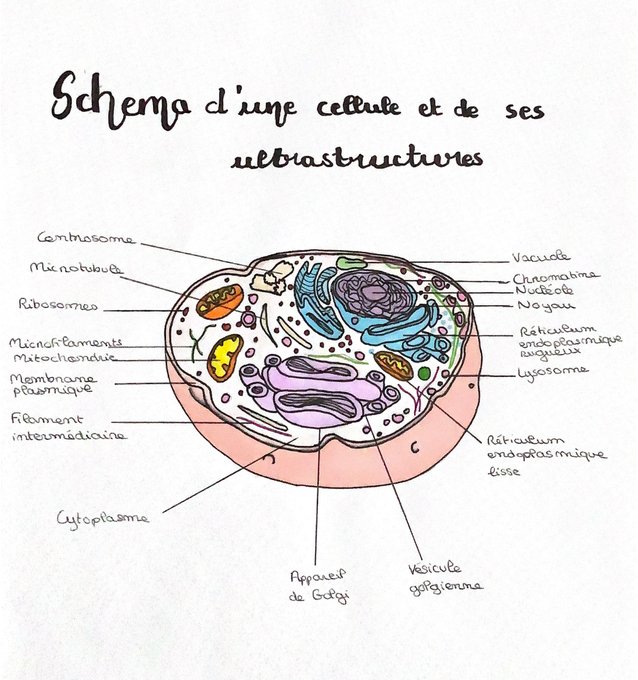 Schema d'une cellule et de ses
ultrastructures
Centrosome
Microtubule
Ribosomes
Microfilaments
Mitochondrie
Membrane
plasmique
Filament
intermédiaire
Cytoplasme
Appareil
de Golgi
Vésicule
golgienne
Vacuole
Chromatine
Nucléole
Noyau
Réticulum
endoplasmique
rugueux
Lysosome
Réticulum
endoplasmique
lisse